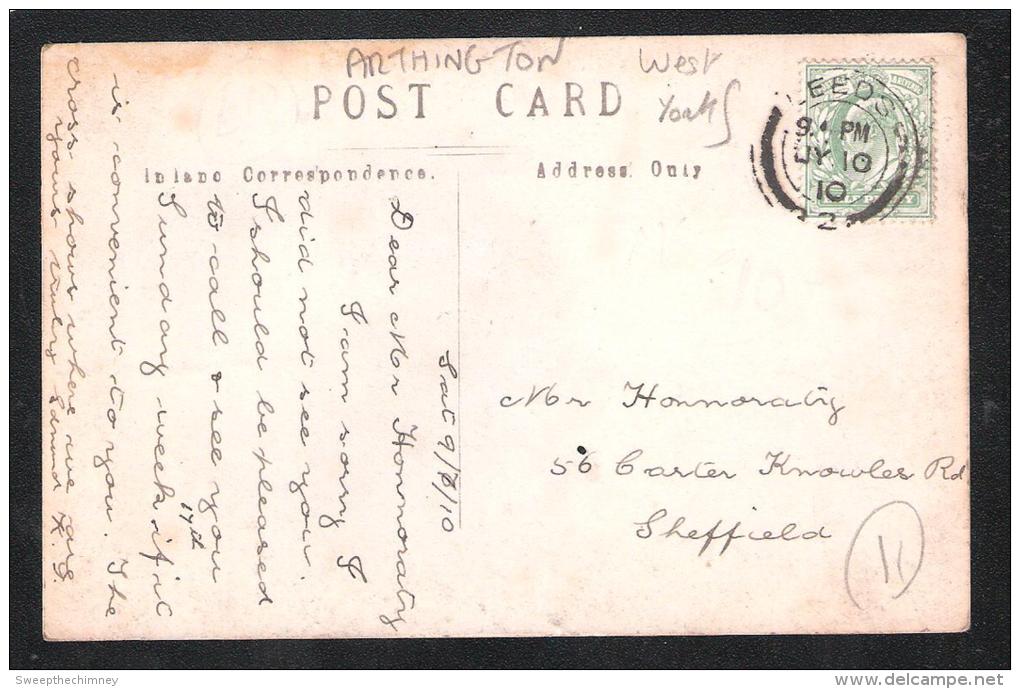 ARTHINGTON West
Yorks
POST CARD
Inland Correspondence.
Address Only
LEEDS
9. PM
JY 10
10
2
Sat 9/7/10
Dear Mr Honnoraty
I am sorry I
did not see you.
I should be pleased
to call & see you
17th
Sunday week if it
is convenient to you. The
cross shows where we are.
Yours truly
Mr Honnoraty
56 Carter Knowles Rd
Sheffield
11
Sweepthechimney
delcampe.net